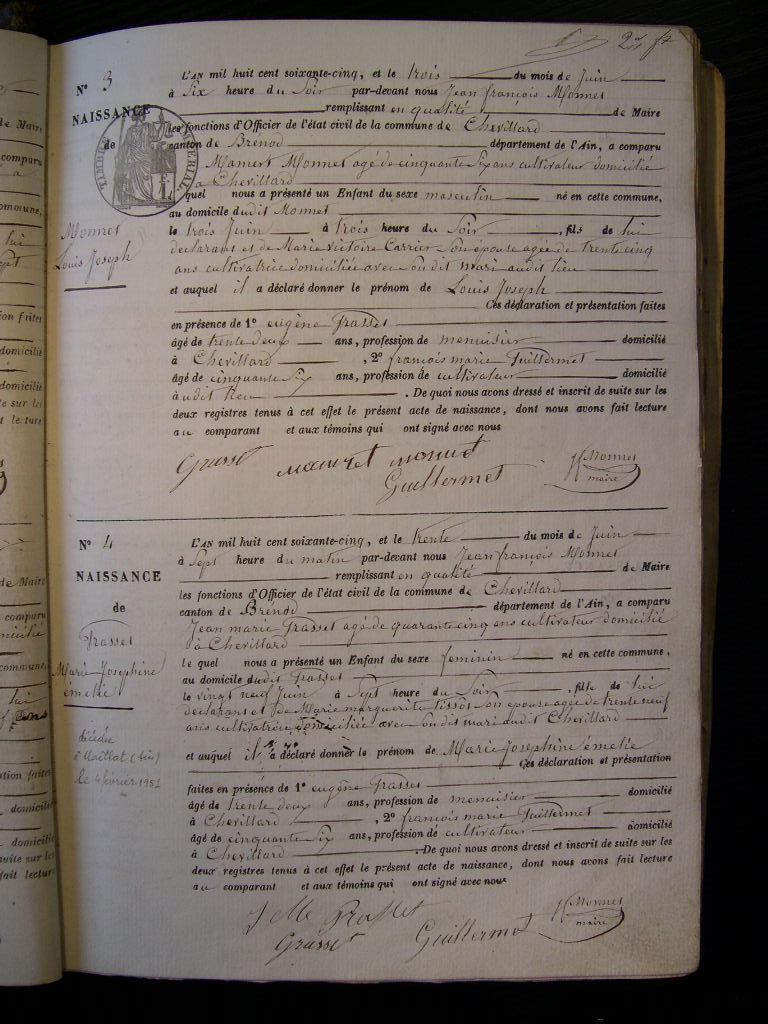 Nº 3
NAISSANCE
de
Monnet
Louis Joseph
L'AN mil huit cent soixante-cinq, et le trois du mois de Juin
à Six heure du Soir par-devant nous Jean françois Monnet
remplissant en qualité de Maire
les fonctions d'Officier de l'état civil de la commune de Chevillard
canton de Brénod département de l'Ain, a comparu
Mamert Monnet agé de cinquante Six ans cultivateur domicilié
à Chevillard
quel nous a présenté un Enfant du sexe masculin né en cette commune,
au domicile dudit Monnet
le trois Juin à trois heure du Soir, fils de lui
declarant et de Marie victoire Carrier Son épouse agée de trente cinq
ans cultivatrice domiciliée avec Son dit mari audit lieu
et auquel il a déclaré donner le prénom de Louis Joseph
Ces déclaration et présentation faites
en présence de 1º eugène Grasset
âgé de trente deux ans, profession de menuisier domicilié
à Chevillard, 2º françois marie Guillermet
âgé de cinquante Six ans, profession de cultivateur domicilié
audit lieu. De quoi nous avons dressé et inscrit de suite sur les
deux registres tenus à cet effet le présent acte de naissance, dont nous avons fait lecture
au comparant et aux témoins qui ont signé avec nous
Grasset mamret monnet
Guillermet
Monnet
maire
Nº 4
NAISSANCE
de
Grasset
Marie Josephine
émelie
décédée
le 4 février 1951
L'AN mil huit cent soixante-cinq, et le trente du mois de Juin
à Sept heure du matin par-devant nous Jean françois Monnet
remplissant en qualité de Maire
les fonctions d'Officier de l'état civil de la commune de Chevillard
canton de Brénod département de l'Ain, a comparu
Jean marie Grasset agé de quarante cinq ans cultivateur domicilié
à Chevillard
le quel nous a présenté un Enfant du sexe feminin né en cette commune,
au domicile dudit Grasset
le vingt neuf Juin à Sept heure du Soir, fille de lui
declarant et de Marie marguerite tissot Son épouse agée de trente neuf
ans cultivatrice domiciliée avec Son dit mari audit Chevillard
et auquel il a déclaré donner le prénom de Marie Josephine émelie
Ces déclaration et présentation
faites en présence de 1º eugène Grasset
âgé de trente deux ans, profession de menuisier domicilié
à Chevillard, 2º françois marie Guillermet
âgé de cinquante Six ans, profession de cultivateur domicilié
à Chevillard. De quoi nous avons dressé et inscrit de suite sur les
deux registres tenus à cet effet le présent acte de naissance, dont nous avons fait lecture
au comparant et aux témoins qui ont signé avec nous
Grasset
Guillermet
Monnet
maire